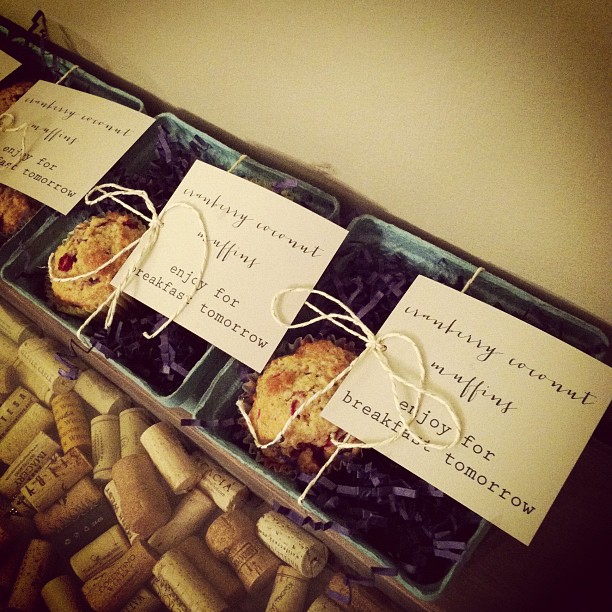 cranberry coconut
muffins
enjoy for
breakfast tomorrow
cranberry coconut
muffins
enjoy for
breakfast tomorrow
cranberry coconut
muffins
enjoy for
breakfast tomorrow